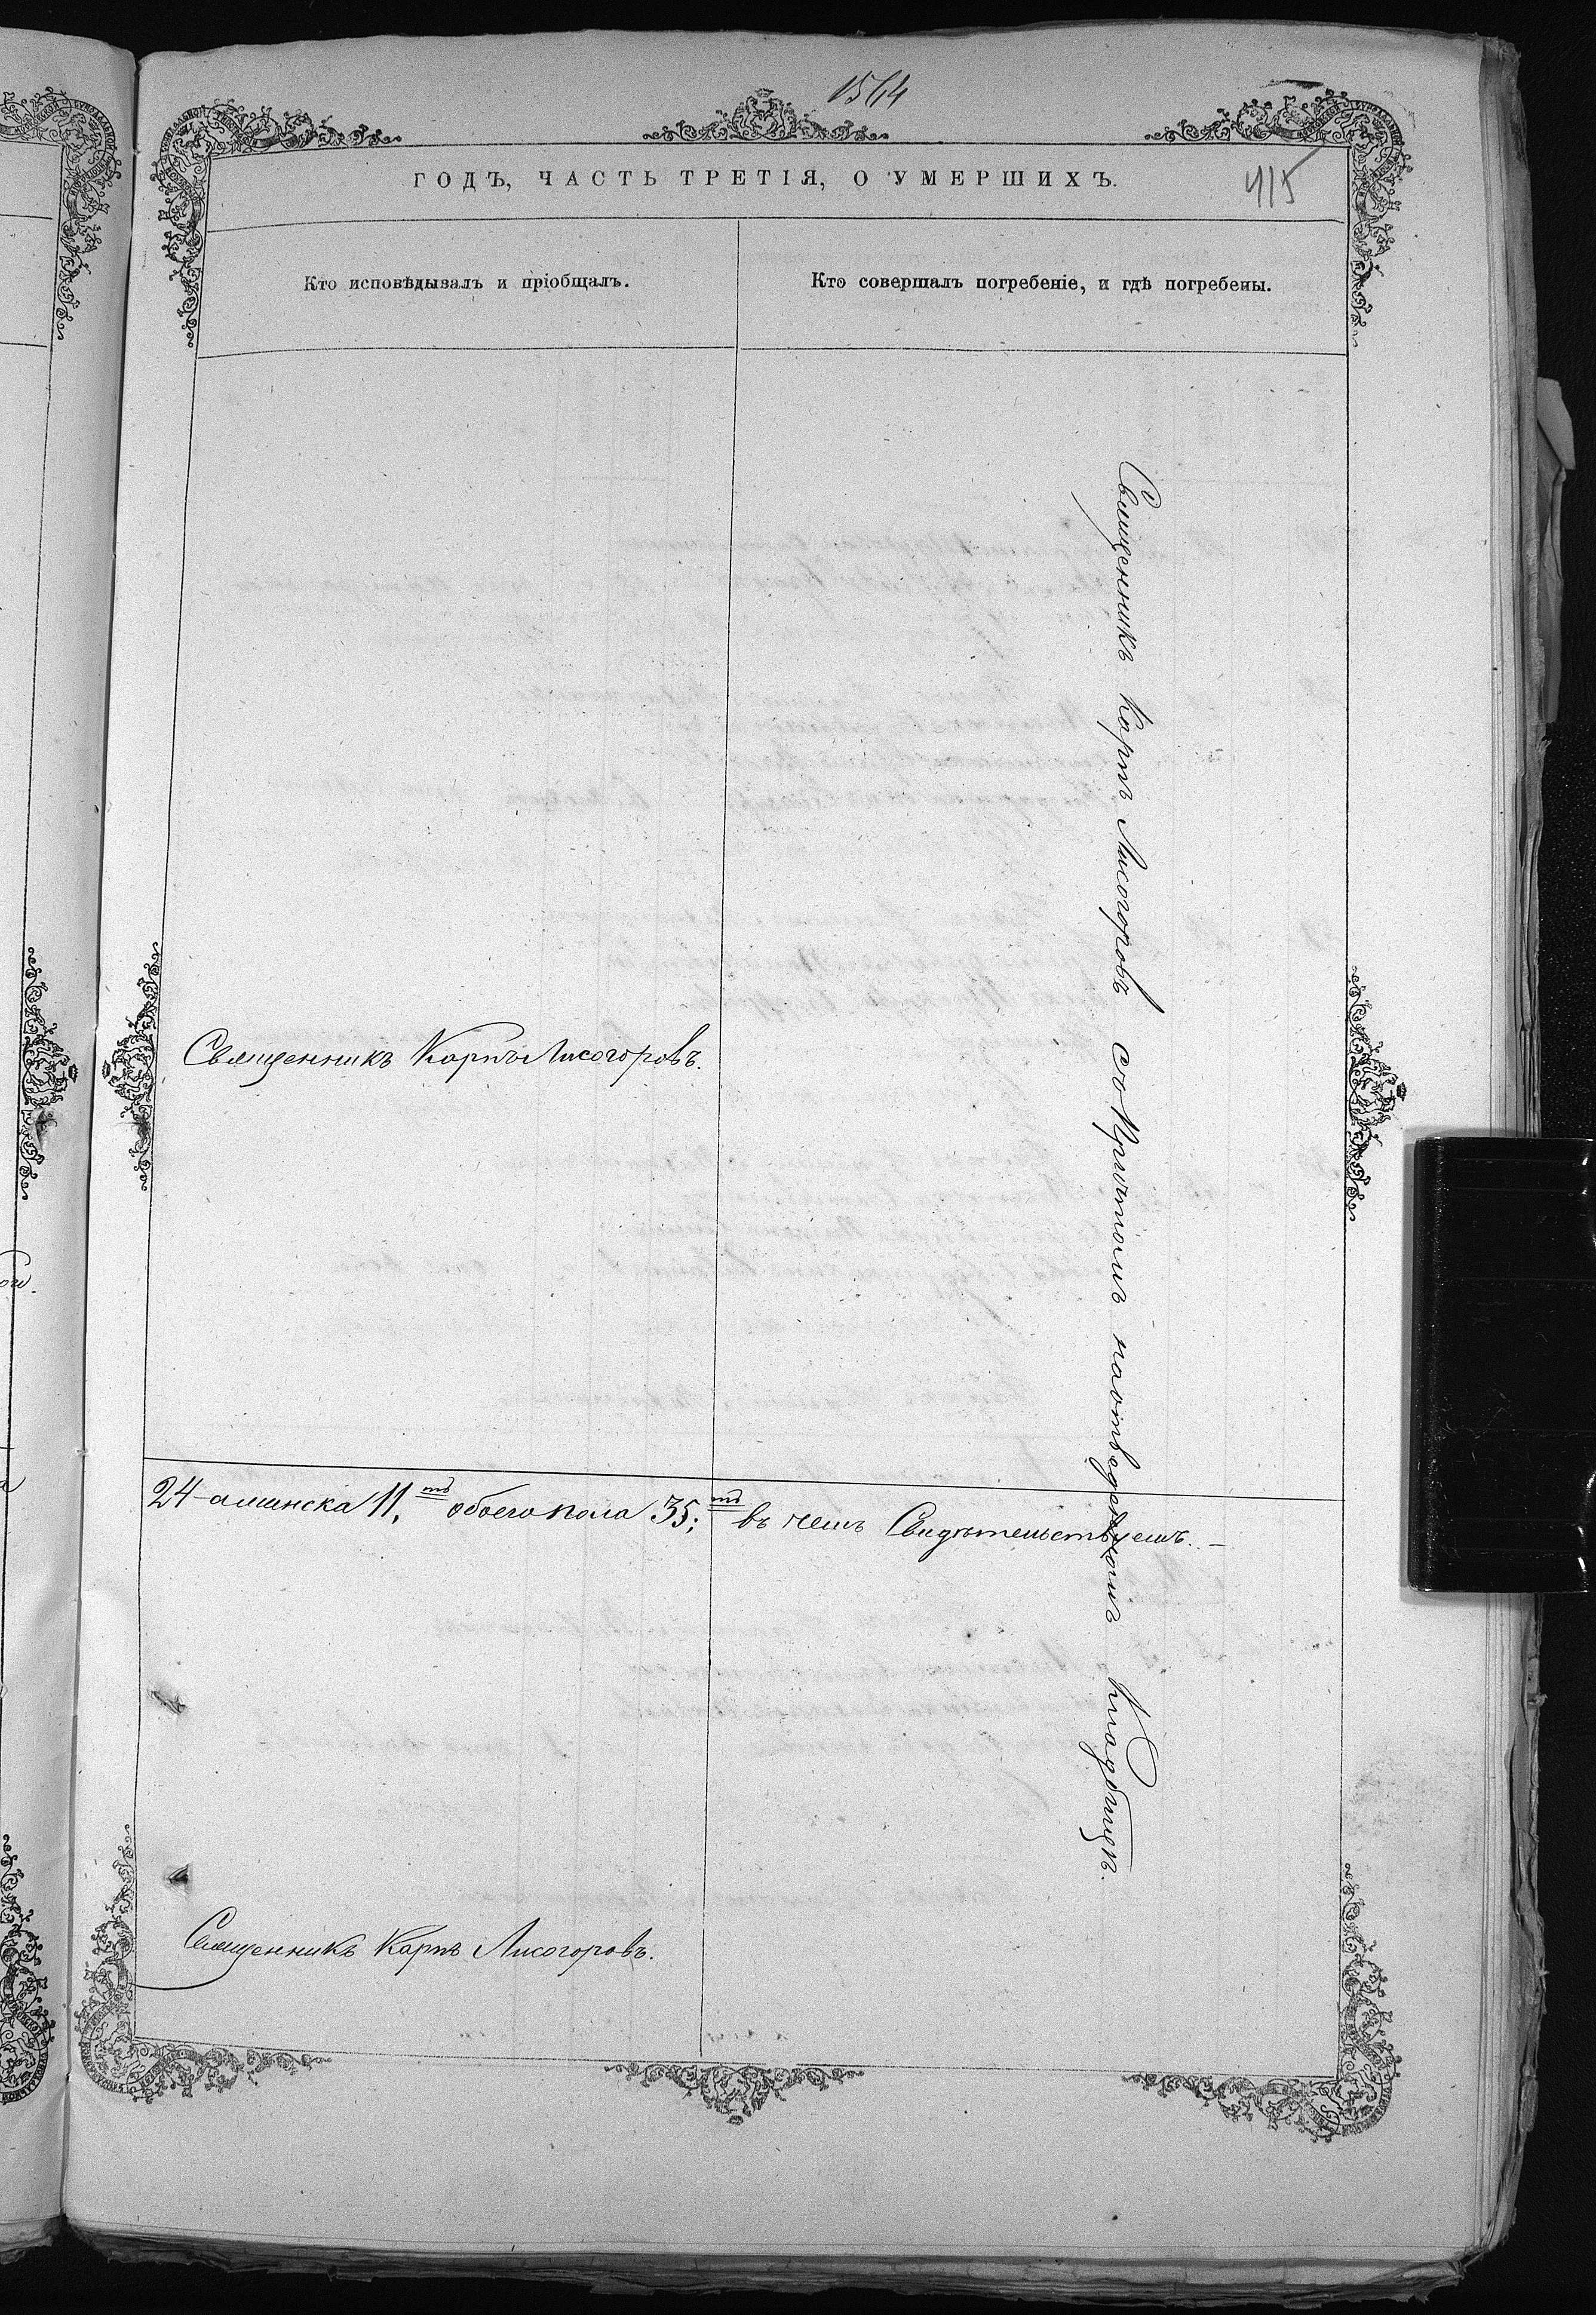 1564
ГОДЪ, ЧАСТЬ ТРЕТІЯ, О УМЕРШИХЪ.
415
Кто исповѣдывалъ и пріобщалъ.
Кто совершалъ погребеніе, и гдѣ погребены.
Священникъ Карпъ Лисогоровъ.
Священникъ Карпъ Лисогоровъ со Причтомъ на отведенномъ кладбищѣ.
24 а женска 11,тъ обоего пола 35;тъ въ чемъ Свидѣтельствуемъ. –
Священникъ Карпъ Лисогоровъ.